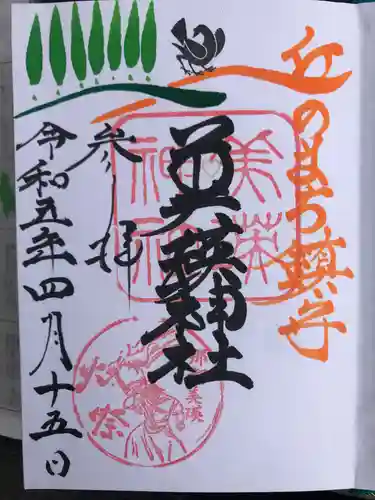 丘のまち鎮守
美瑛神社
参拝
令和五年四月十五日
美瑛
神社
那智
美瑛
火祭